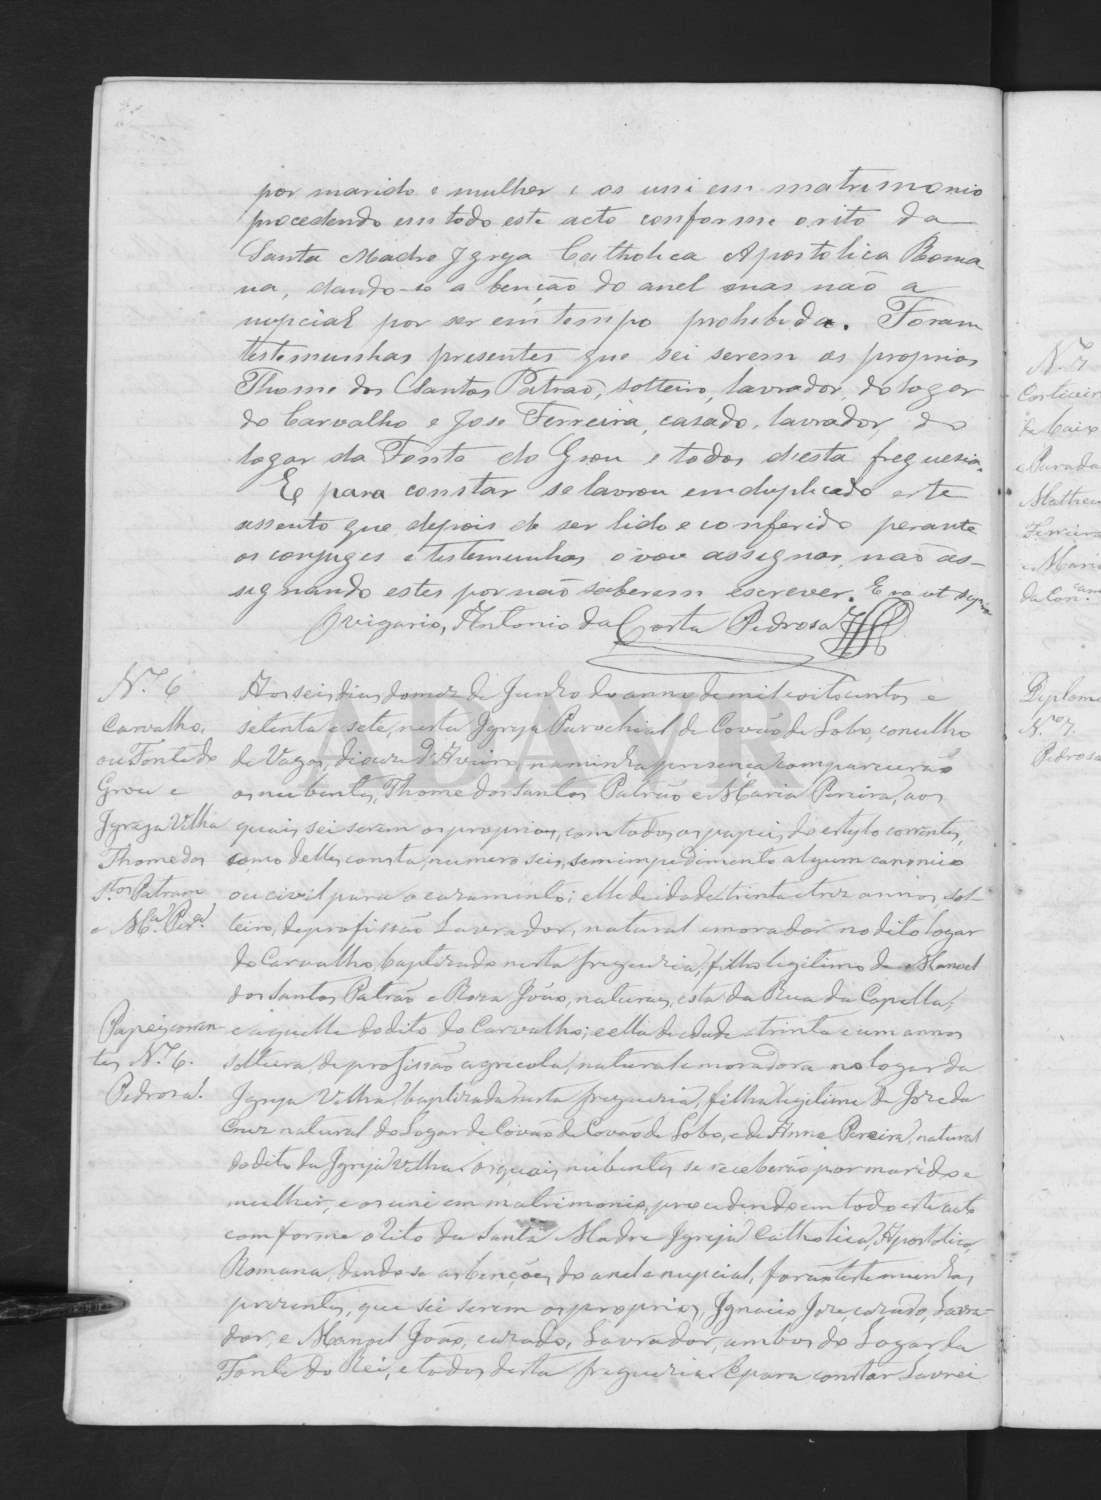 por marido e mulher e os uni em matrimonio
procedendo em todo este acto conforme o rito da
Santa Madre Igreja Catholica Apostolica Roma
na, dando-se a benção do anel mas não a
nupcial por ser em tempo prohibido. Foram
testemunhas presentes que sei serem os proprios
Thome dos Santos Patrão, solteiro, lavrador, do logar
do Carvalho e Jose Ferreira, casado, lavrador, do
logar da Fonte do Grou e todos desta freguesia.
E para constar se lavrou em duplicado este
assento que depois de ser lido e conferido perante
os conjuges e testemunhas o vou assignar, não as-
signando estes por não saberem escrever. Era ut supra
O vigario, Antonio da Costa Pedrosa
N.º 6
Carvalho,
ou Fonte do
Grou e
Igreja Velha
Thome dos
S.tos Patram
e M.ª Per.ª
Papeis corren
tes N.º 6.
Pedrosa.
Aos seis dias do mez de Junho do anno de mil oitocentos e
setenta e sete, nesta Igreja Parochial de Covão de Lobo, concelho
de Vagos, diocese d'Aveiro, na minha presença compareceram
os nubentes, Thome dos Santos Patrão e Maria Pereira, aos
quais sei serem os proprios, com todos os papeis do estylo correntes,
como delles consta, numero seis, sem impedimento algum canonico
ou civil para o casamento; elle de idade trinta e trez annos, sol-
teiro, de profissão Lavrador, natural e morador no dito logar
do Carvalho, baptizado nesta freguezia, filho legitimo de Manoel
dos Santos Patrão e Roza João, naturaes, esta da Rua da Capella,
e aquelle do dito do Carvalho; e ella de idade trinta e um annos
solteira, de profissão agricola, natural e moradora no logar da
Igreja Velha, baptizada nesta freguezia, filha legitima de Joze da
Cruz natural do Logar de Covão de Covão de Lobo, e de Anna Pereira, natural
do dito da Igreja Velha. os quais nubentes se receberão por marido e
mulher, e os uni em matrimonio, procedendo em todo este acto
conforme o Rito da Santa Madre Igreja Catholica, Apostolica,
Romana, dando se as benções do anel e nupcial, forão testemunhas
prezentes, que sei serem os proprios, Ignacio Joze, cazado, Lavra-
dor, e Manoel João, cazado, Lavrador, ambos do Logar da
Fonte do Rei, e todos desta freguezia. E para constar Lavrei
N.º 7
Corticeir
de Caixo
e Parada
Matheus
Ferreira
e Maria
da Con.cam
Diploma
N.º 7
Pedrosa
ADAVR